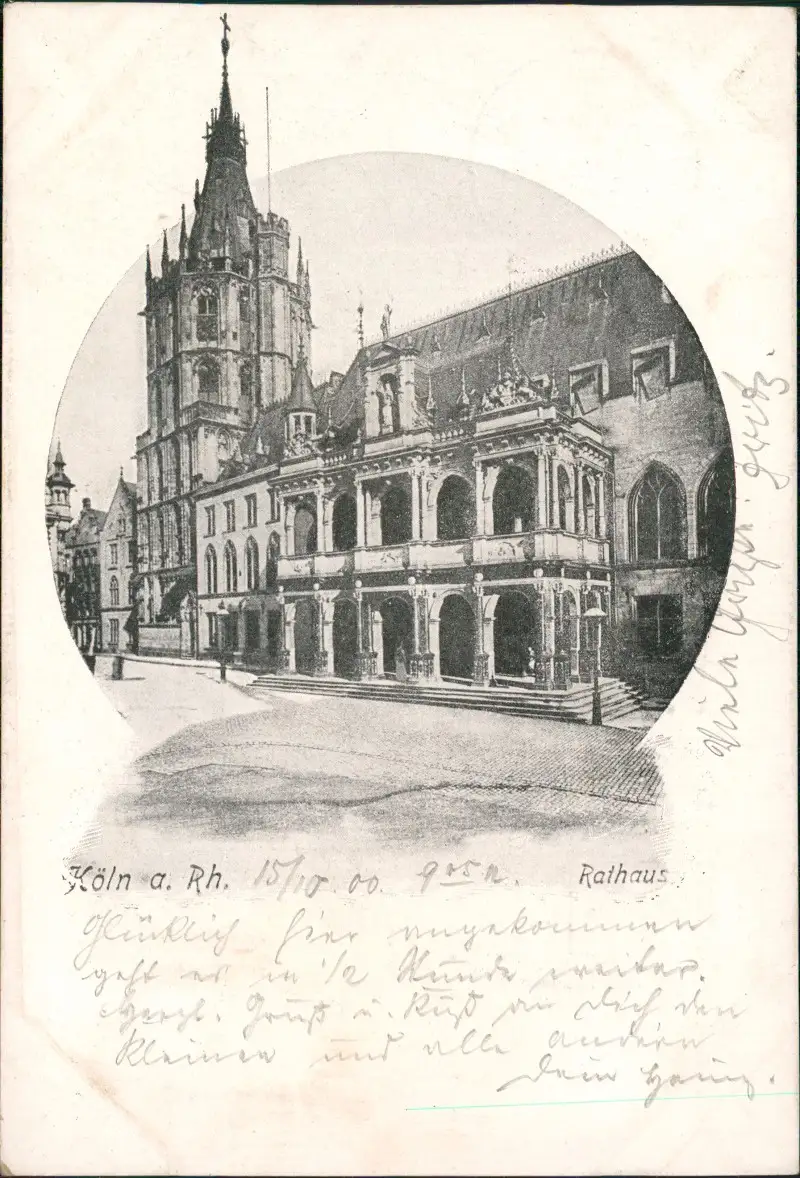 Köln a. Rh. 15/10.00. 9 05 N.
Rathaus
Glücklich hier angekommen
geht es in 1/2 Stunde weiter.
Herzl. Gruß u. Kuß an Dich den
Kleinen und alle andern
Dein Heinz.
Viele